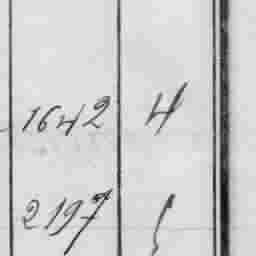 1642 4
2197